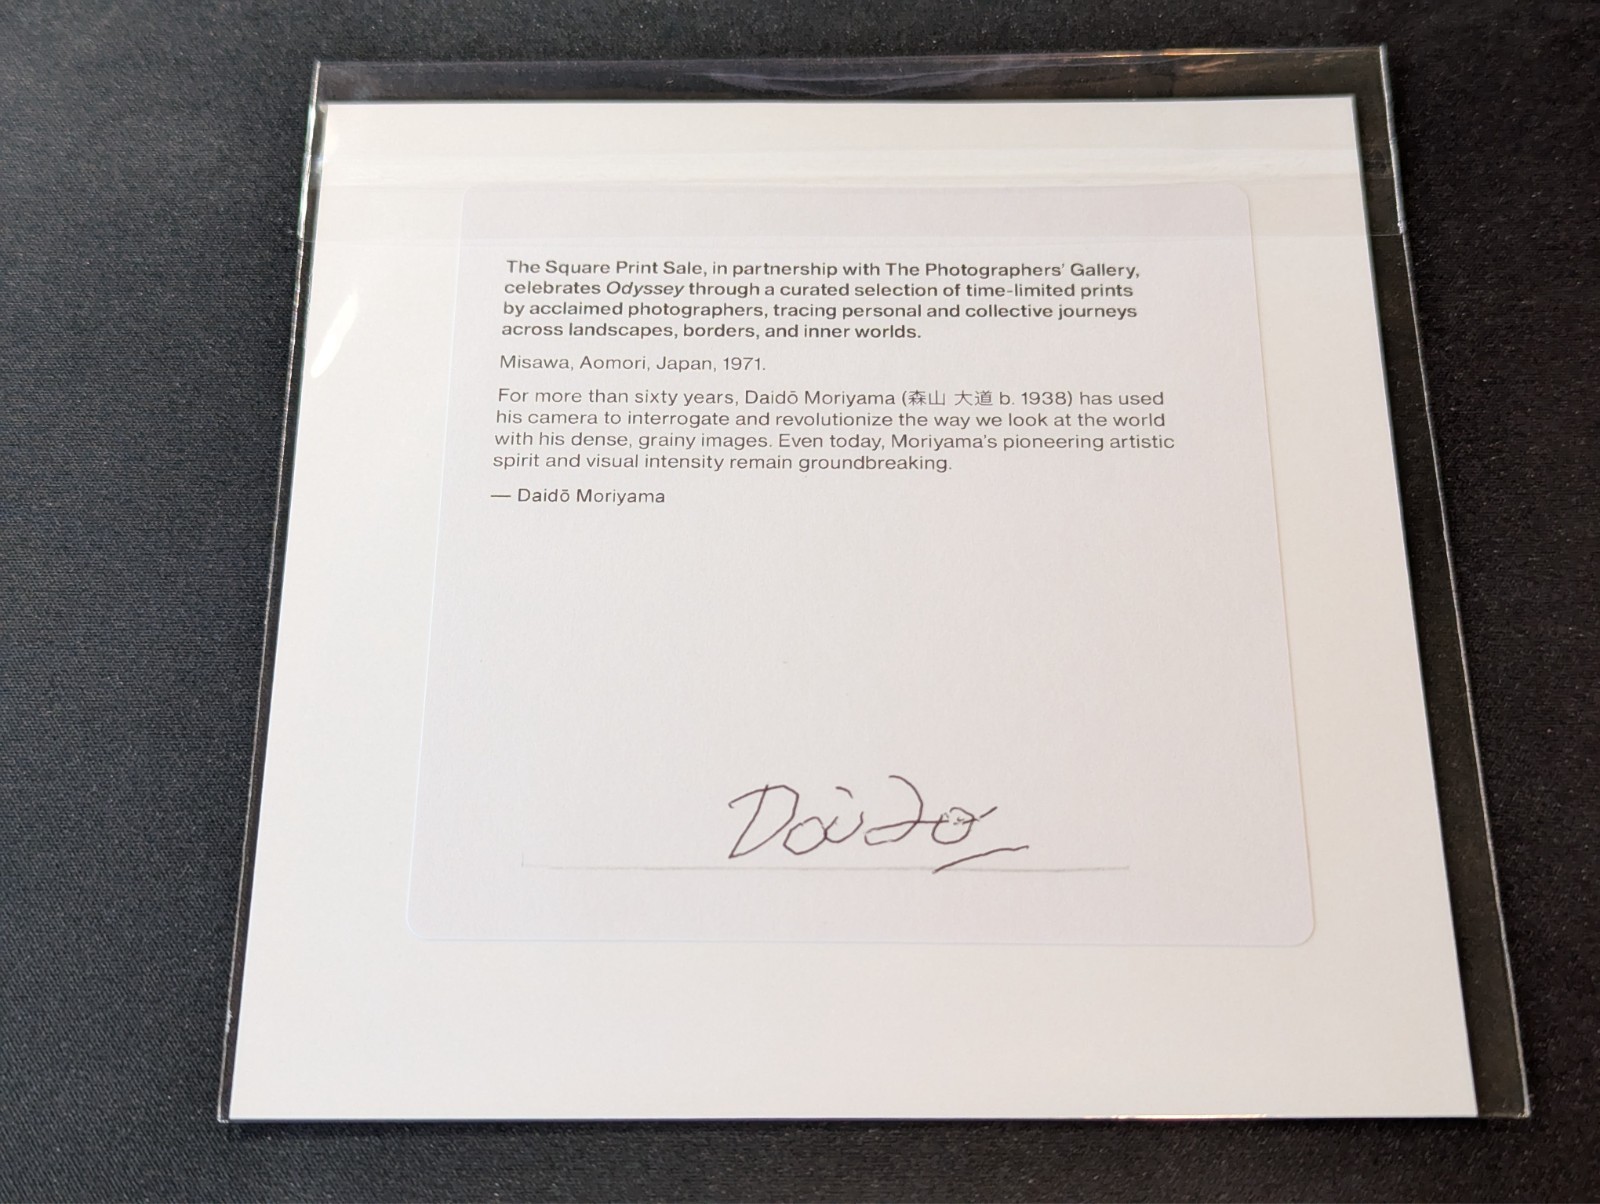 The Square Print Sale, in partnership with The Photographers' Gallery,
celebrates Odyssey through a curated selection of time-limited prints
by acclaimed photographers, tracing personal and collective journeys
across landscapes, borders, and inner worlds.
Misawa, Aomori, Japan, 1971.
For more than sixty years, Daidō Moriyama (森山 大道 b. 1938) has used
his camera to interrogate and revolutionize the way we look at the world
with his dense, grainy images. Even today, Moriyama's pioneering artistic
spirit and visual intensity remain groundbreaking.
— Daidō Moriyama
Daido